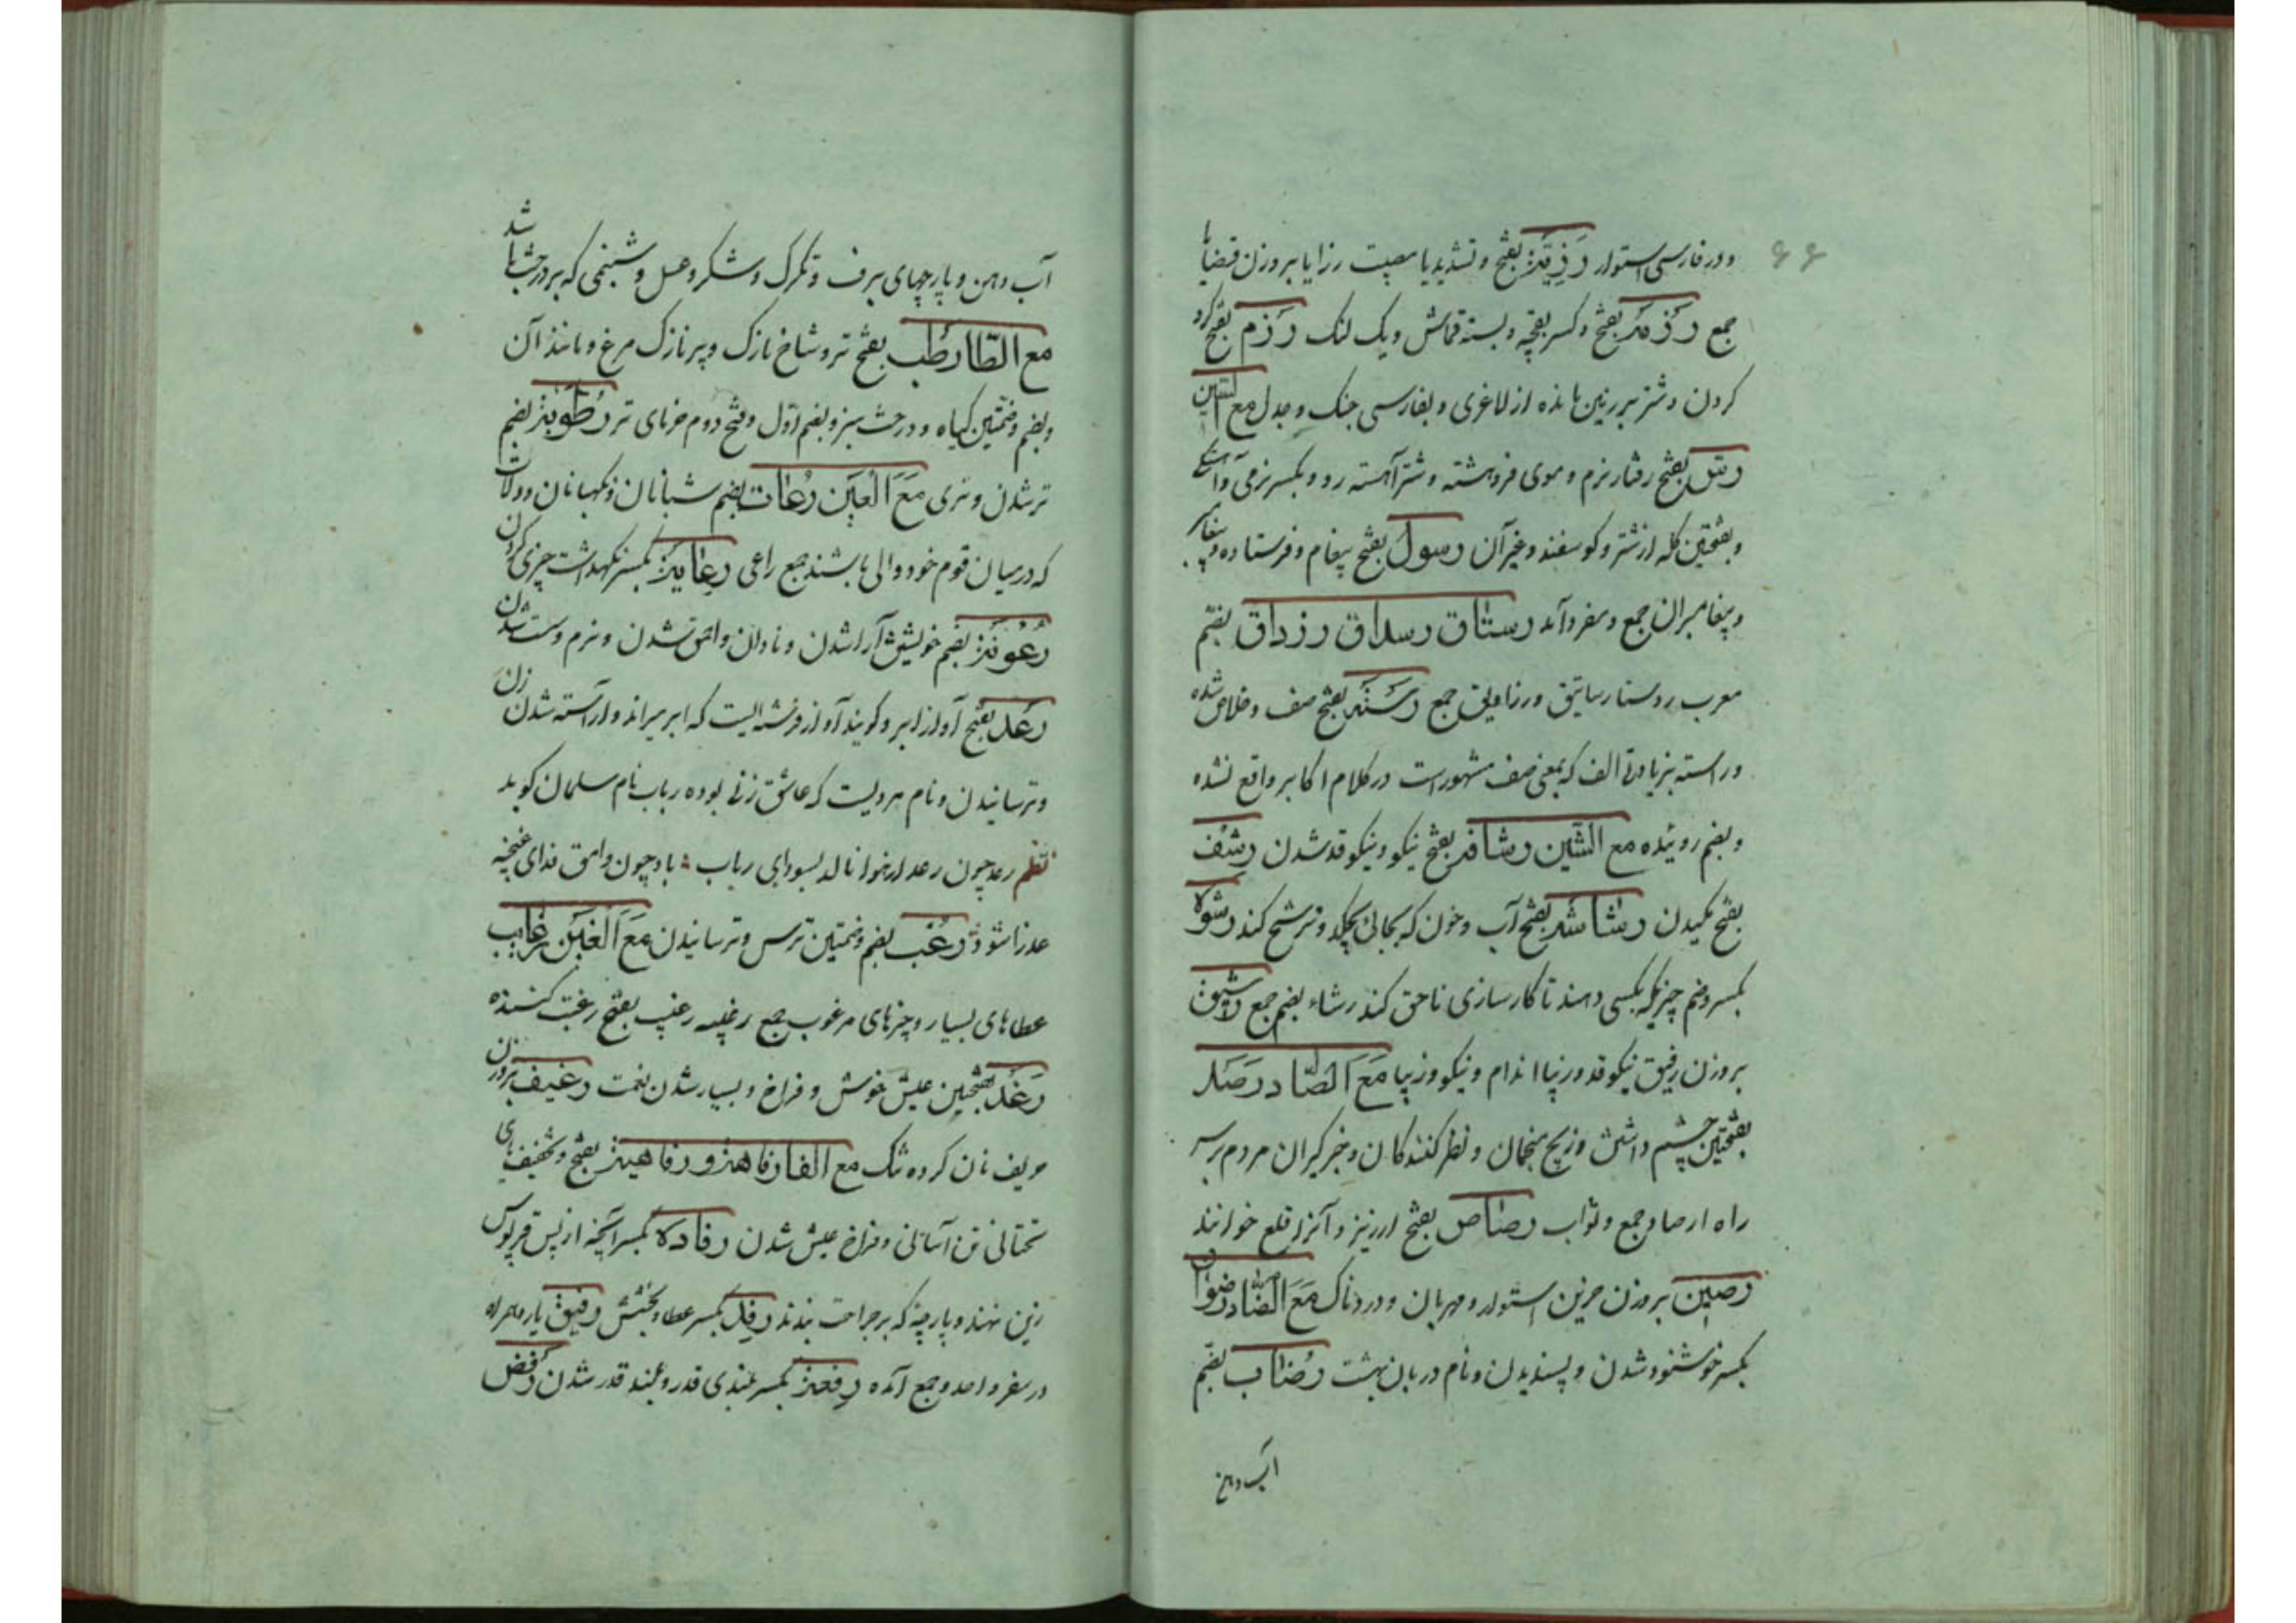 ۶۶
و در فارسی استوار رزیّة بفتح و تشدید یا مصیبت رزایا بر وزن قضایا
جمع رزمة بفتح و کسر بقچه و بسته قماش و یک لنک رزم بفتح کرد
کردن و شتر بر زمین مانده از لاغری و بفارسی جنک و جدل مع السّین
رسل بفتح رفتار نرم و موی فروهشته و شتر آهسته رو و بکسر نرمی و آهستکی
و بفتحتین کله از شتر و کوسفند و غیر آن رسول بفتح پیغام و فرستاده و پیغامبر
و پیغامبران جمع و مفرد آمد رستاق رسداق رزداق بضم
معرب روستا رساتیق و رزادیق جمع رسته بفتح صف و خلاص شده
و راسته بزیادتی الف که بمعنی صف مشهور است در کلام اکابر واقع نشده
و بضم روئیده مع الشّین رشاقة بفتح نیکو و نیکو قد شدن رشف
بفتح مکیدن رشاشه بفتح آب و خون که بجائی بچکد و ترشح کند رشوة
بکسر و ضم چیزیکه بکسی دهند تا کارسازی ناحق کند رشاء بضم جمع رشیق
بر وزن رفیق نیکو قد و زیبا اندام و نیکو و زیبا مع الصّاد رصد
بفتحتین چشم داشتن و زیچ منجمان و نظر کنندکان و خبر کیران مردم بر سر
راه ارصاد جمع و ثواب رصاص بفتح ارزیز و آنرا قلع خوانند
رصین بر وزن حزین استوار و مهربان و دردناک مع الضّاد رضوان
بکسر خوشنود شدن و پسندیدن و نام دربان بهشت رضاب بضم
آب دهن
آب دهن و پارچهای برف و تکرک و شکر و عسل و شبنمی که بر درختها باشد
مع الطّا رطب بفتح تر و شاخ نازک و پر نازک مرغ و مانند آن
و بضم و ضمّتین کیاه و درخت سبز و بضم اوّل و فتح دوم خرمای تر رطوبة بضم
تر شدن و تری مع العین رعات بضم شبانان و نکهبانان و ولات
که در میان قوم خود والی باشند جمع راعی رعایة بکسر نکهداشت چیزی کردن
رعونة بضم خویشتن آرا شدن و نادان و احمق شدن و نرم و سست شدن
رعد بفتح آواز ابر و کویند آواز فرشته ایست که ابر میراند و آراسته شدن زن
و ترسانیدن و نام مردیست که عاشق زنی بوده رباب نام سلمان کوید
نظم رعد چون رعد از هوا نالد بسودای رباب باد چون وامق فدای غنچه
عذرا شود رعب بضم و ضمتین ترس و ترسانیدن مع الغین رغایب
عطاهای بسیار و چیزهای مرغوب جمع رغیبه رغیب بفتح رغبت کننده
رغد بفتحتین عیش خوش و فراخ و بسیار شدن نعمت رغیف بر وزن
حریف نان کرده تنک مع الفا رفاهة و رفاهیة بفتح و تخفیف یای
تحتانی تن آسانی و فراخ عیش شدن رفاده بکسر آنچه از پس قربوس
زین نهند و پارچه که بر جراحت بندند رفد بکسر عطا و بخشش رفیق یار و همراه
در سفر واحد و جمع آمده رفعة بکسر بلندی قدر و بلند قدر شدن رفض